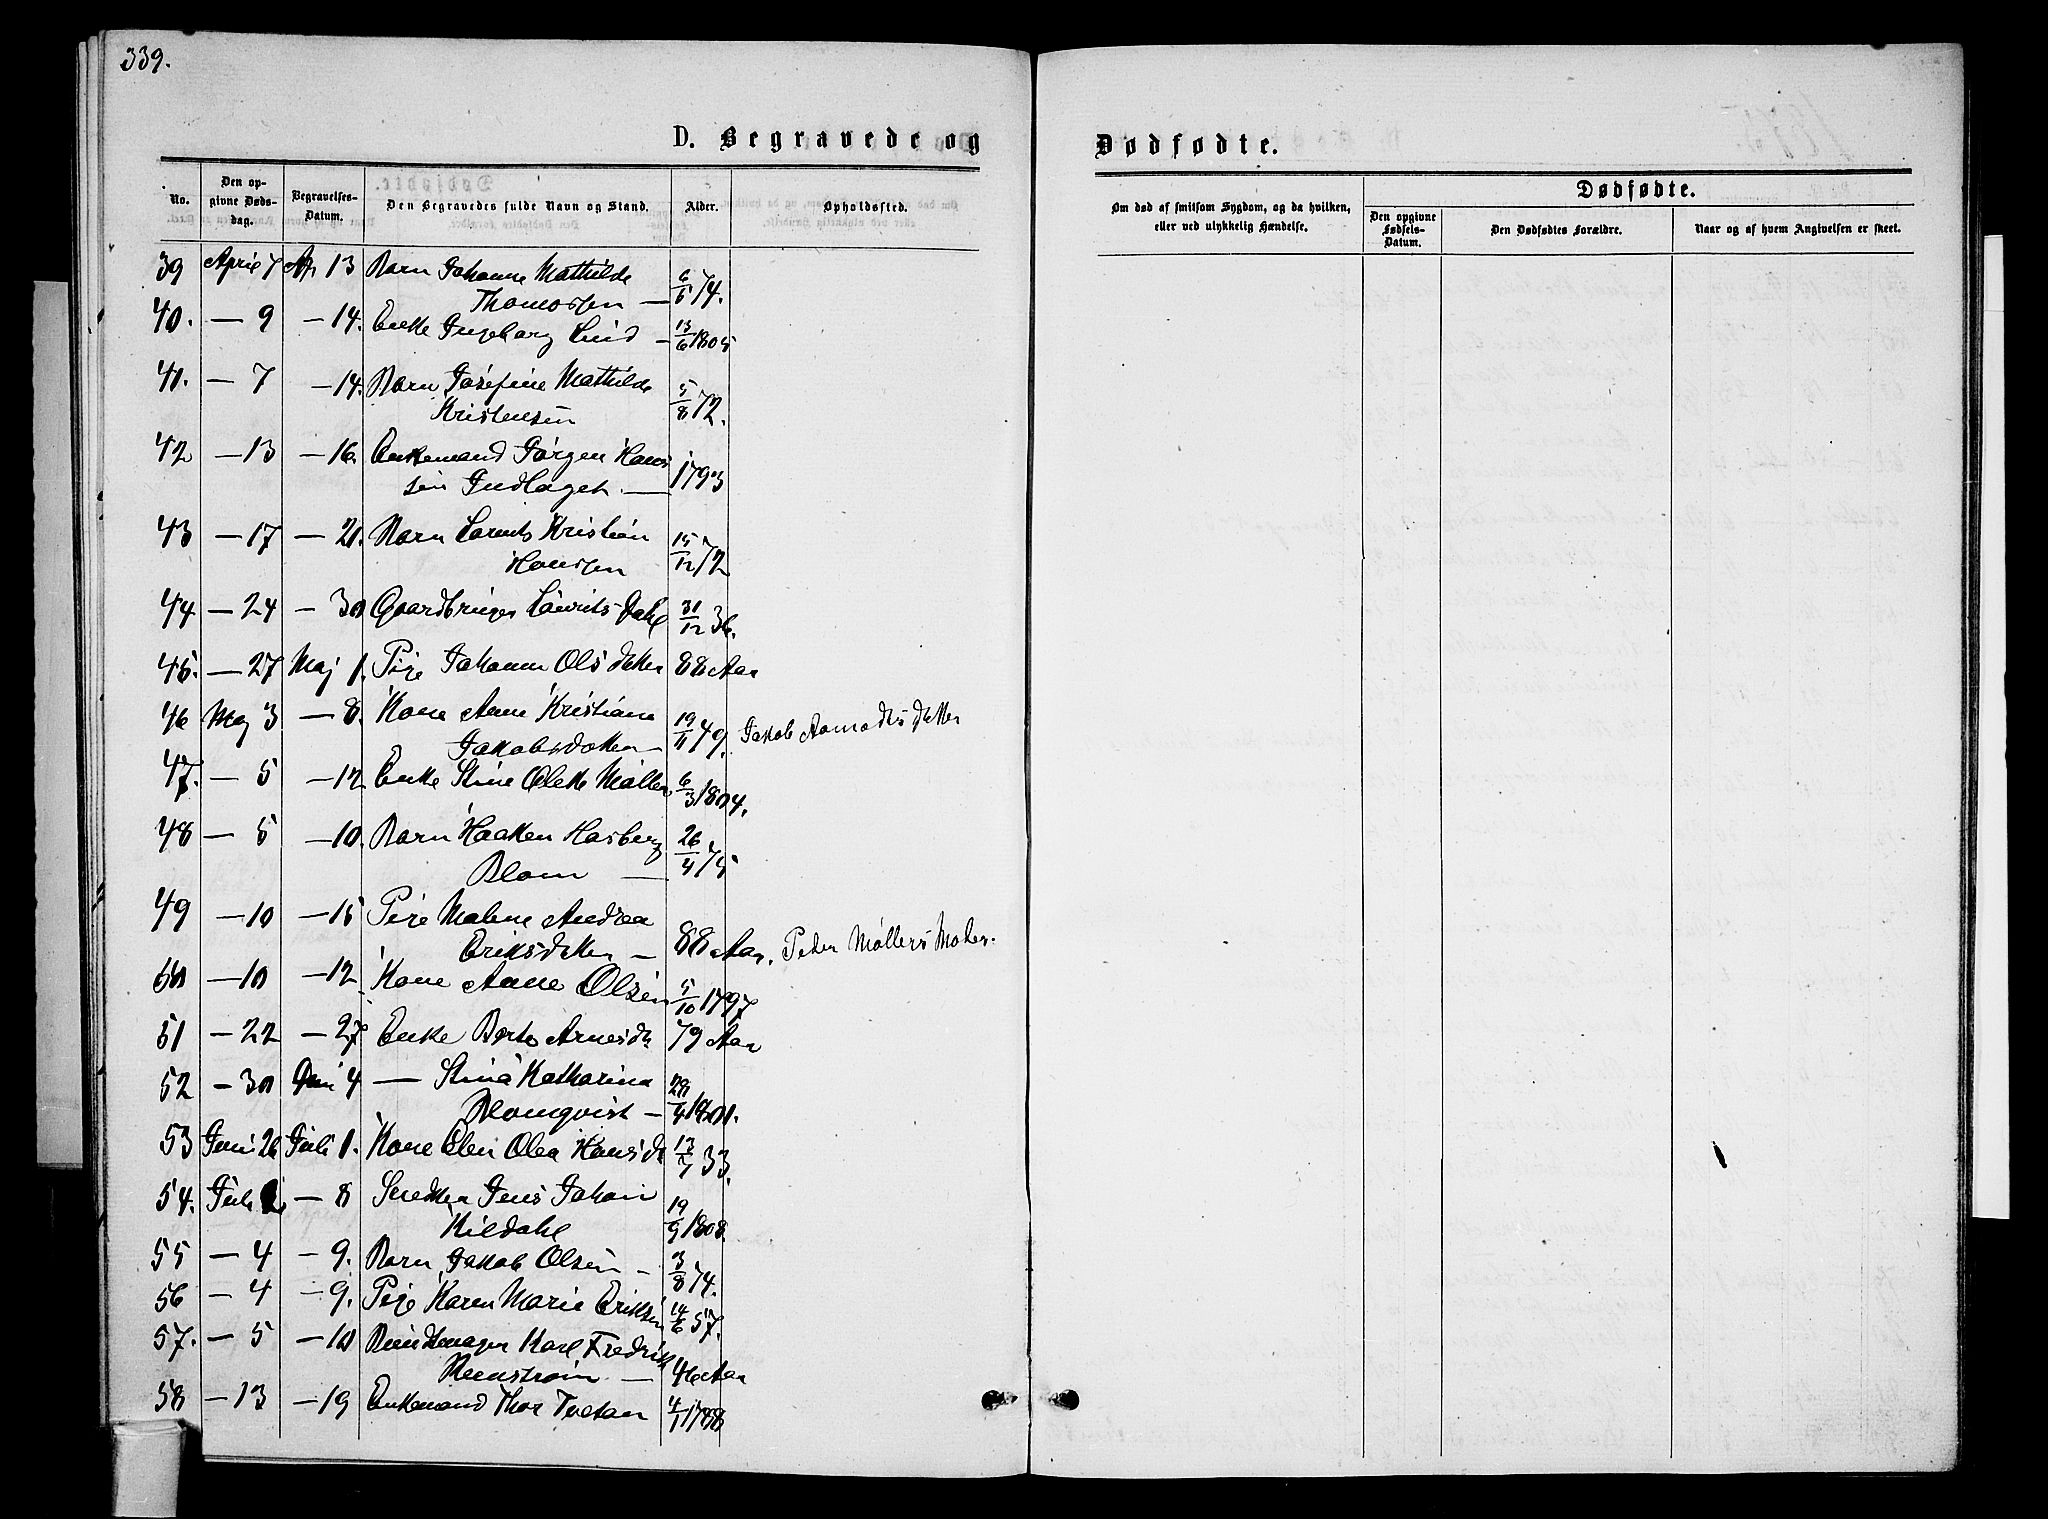 339.
D. Begravede og
Dødfødte.
No.
Den opgivne Dødsdag.
Begravelses-Datum.
Den Begravedes fulde Navn og Stand.
Alder.
Opholdssted.
Om død af smitsom Sygdom, og da hvilken, eller ved ulykkelig Hændelse.
Dødfødte.
Den opgivne Fødsels-Datum.
Den Dødfødtes Forældre.
Naar og af hvem Angivelsen er skeet.
39 April 7 Ap 13 Barn Johanne Mathilde
Thomassen — 6/5 74.
40. — 9 — 14. Enke Ingeborg Lind — 13/6 1805
41. — 7 — 14. Barn Josefine Mathilde
Kristensen 5/8 72.
42 — 13 — 16 Enkemand Jørgen Hans
sen Indlaget — 1793
43 — 17 — 21. Barn Lorents Kristian
Hanssen 15/12 72
44 — 24 — 30 Gaardbruger Laurits Dahl 31/12 36.
45. — 27 Maj 1. Pige Johanne Olsdatter 88 Aar
46 Maj 3 — 8. Kone Anne Kristiane
Jakobsdatter — 19/11 49. Jakob Aamodts Datter
47. — 5 — 12 Enke Stine Olette Møller 6/3 1804.
48 — 5 — 10. Barn Haaken Hasberg
Blom — 26/4 75
49 — 10 — 15 Pige Malene Andrea
Eriksdatter — 88 Aar. Peter Møllers Moder.
50 — 10 — 12 Kone Anne Olsen 5/10 1797
51 — 22 — 27 Enke Berte Arnesdt 79 Aar
52 — 30 Juni 4 — Stina Katharina
Blomqvist — 1801.
53 Juni 26 Juli 1. Kone Elen Olea Hansdt 13/7 33.
54. Juli — 8 Snedker Jens Johan
Kildahl 19/9 1808.
55 — 4 — 9. Barn Jakob Olsen — 3/8 74.
56 — 4 — 9. Pige Karen Marie Eriksen 14/6 57.
57. — 5 — 10 Buntmager Karl Fredrik
— 46 Aar
58 — 13 — 19 Enkemand Thor Tvetan 4/1 1788